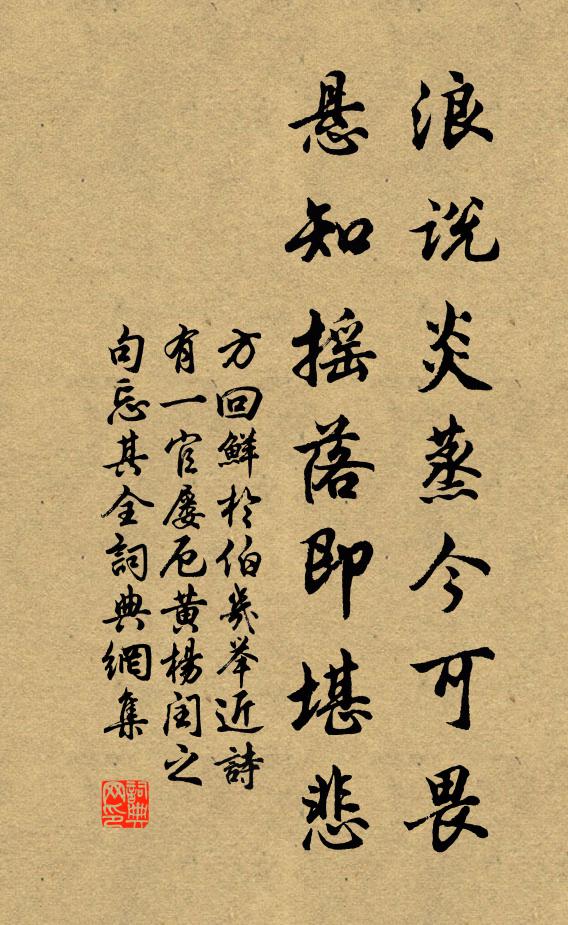 浪说炎蒸今可畏
悬知摇落即堪悲
方回鮮于伯幾举近詩
有一官屡厄黄楊闰之
句忘其全詞典網集
詞典网印